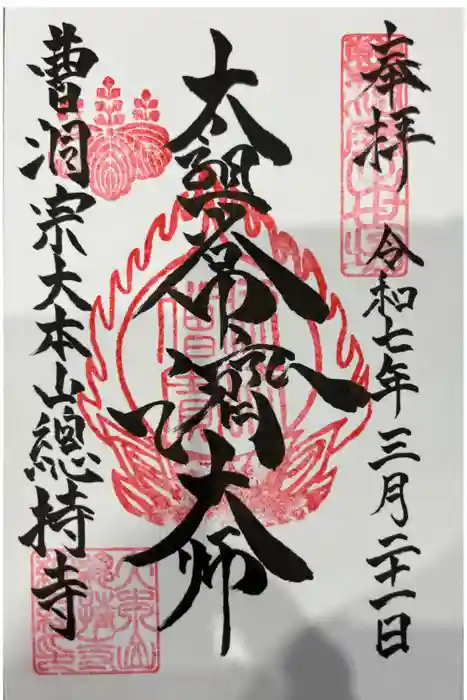 奉拝
令和七年三月二十一日
太祖常済大師
曹洞宗大本山總持寺